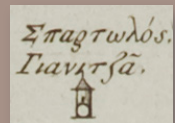 Σπαρτωλός.
Γιανιτζᾶ.